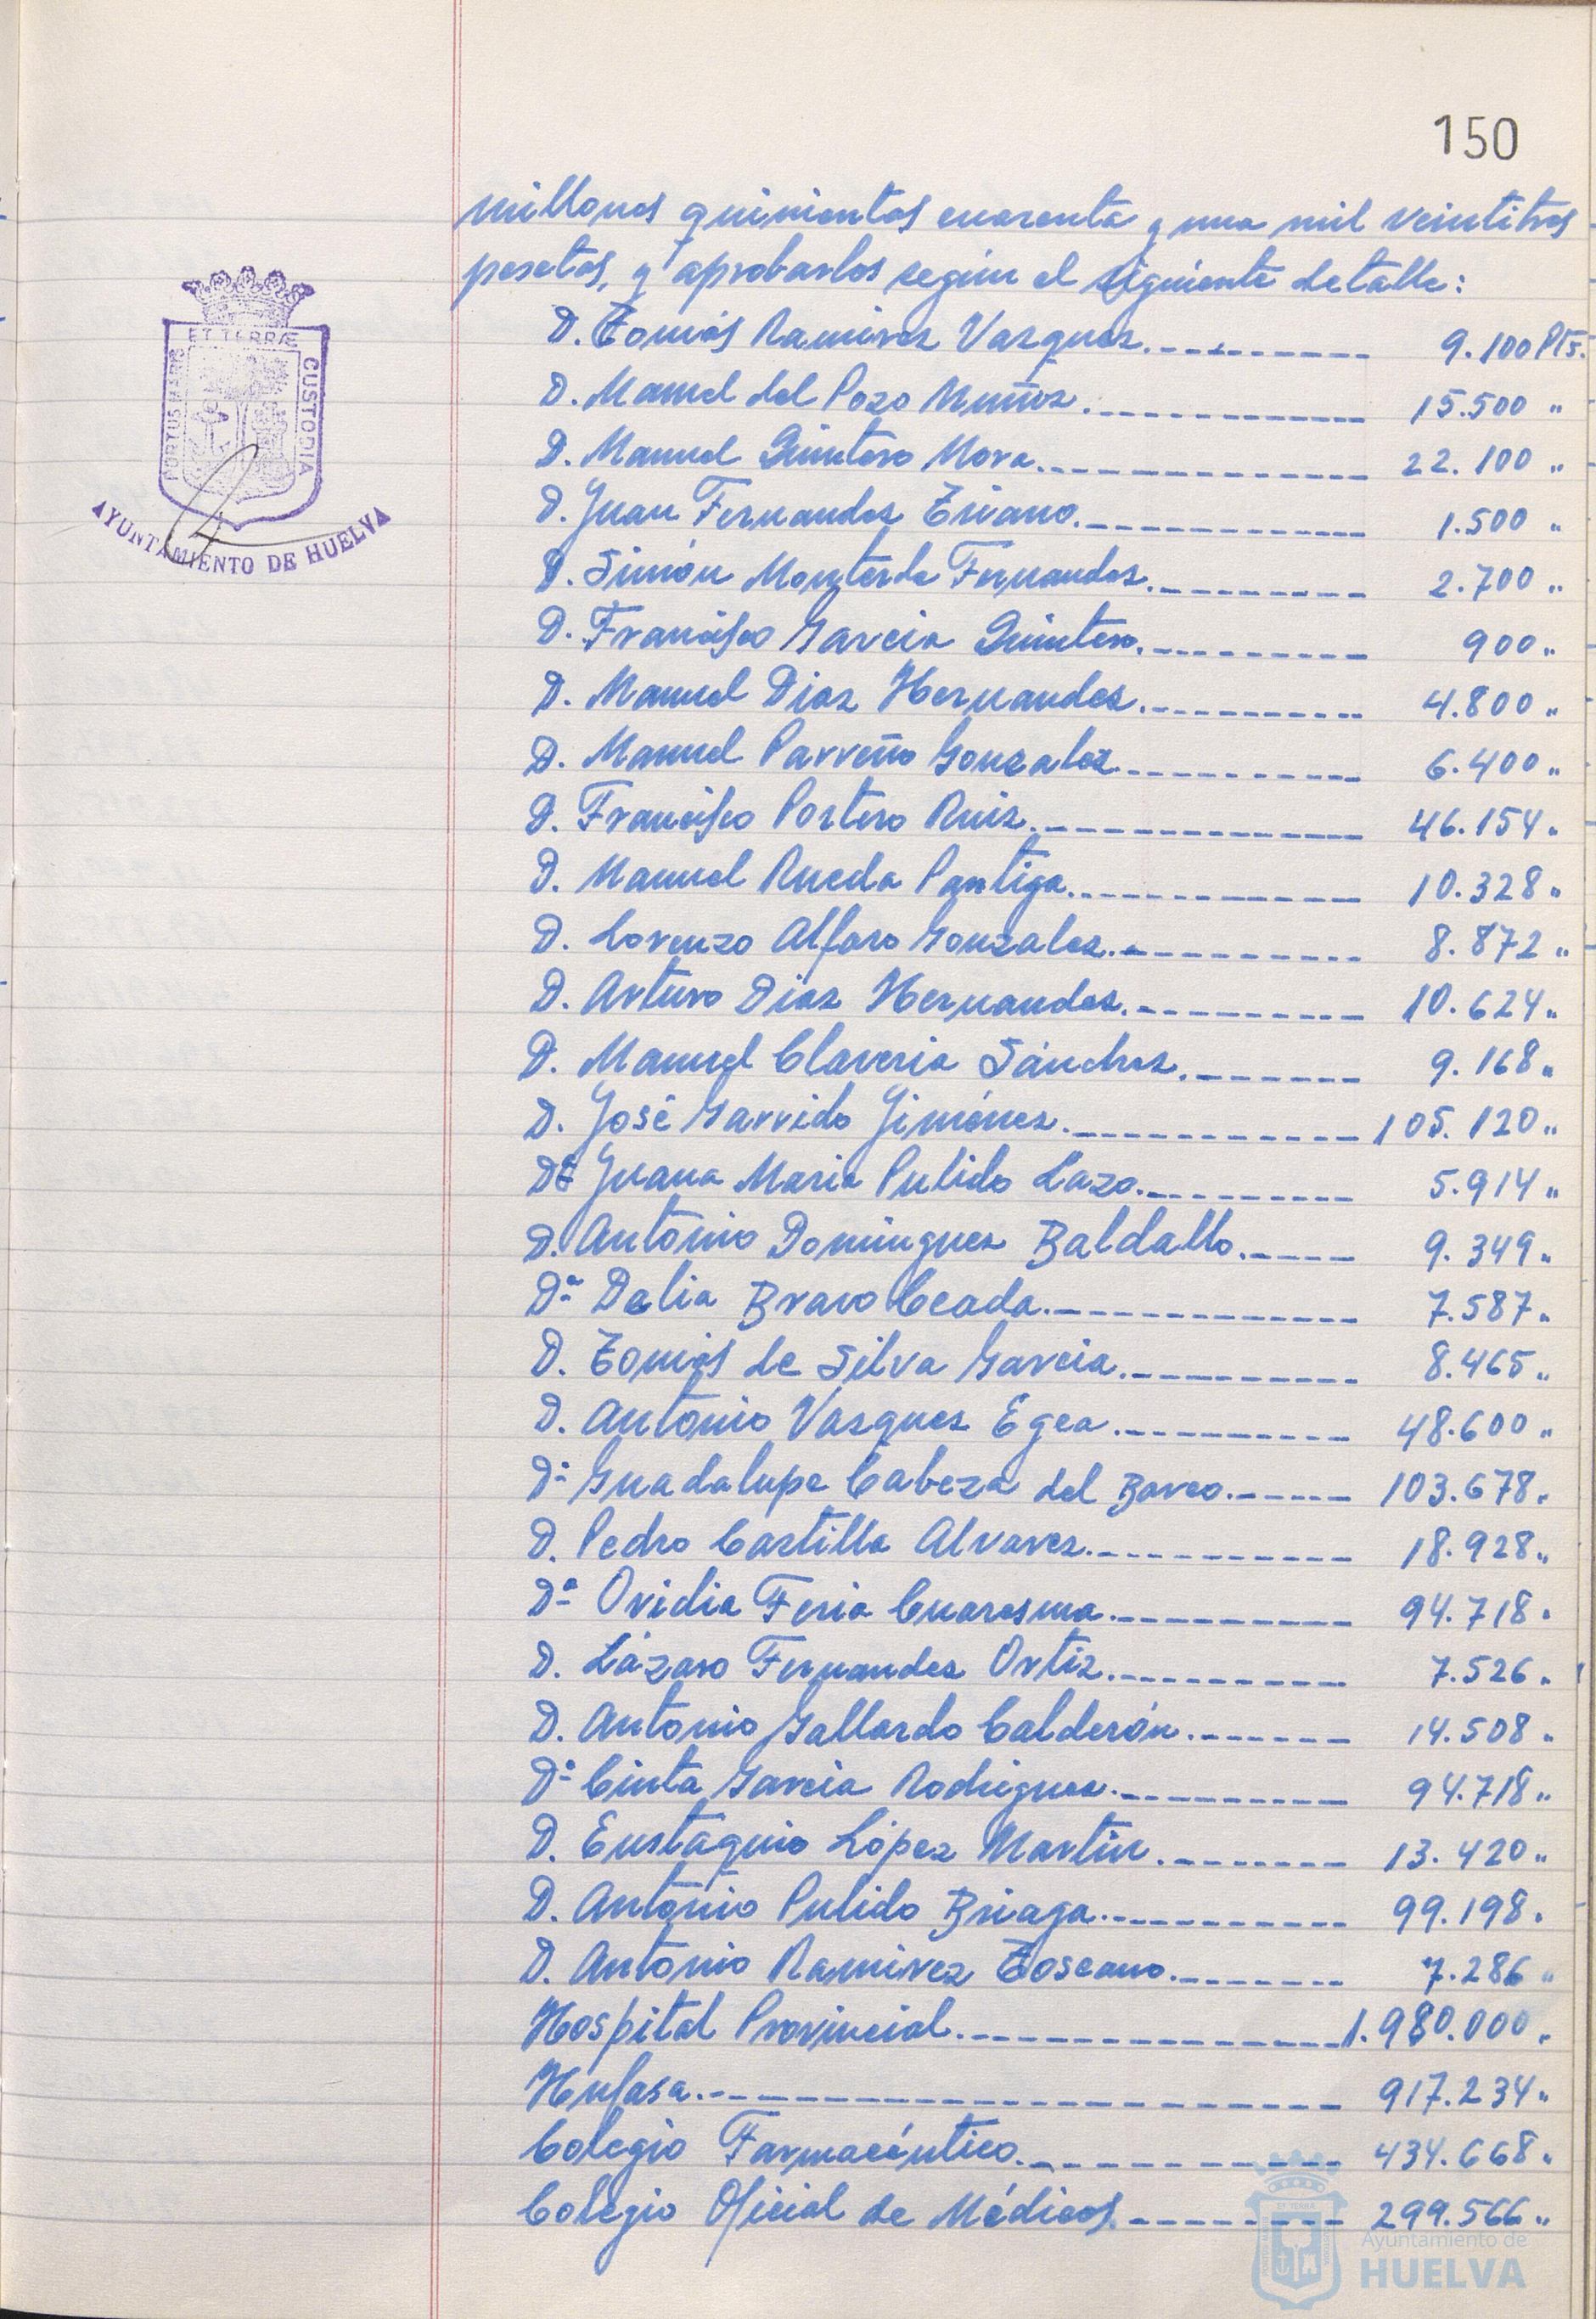 150
millones quinientas cuarenta y una mil veintitres
pesetas, y aprobarlos según el siguiente detalle:
D. Tomás Ramirez Vazquez 9.100 Pts.
D. Manuel del Pozo Muñoz 15.500 "
D. Manuel Quintero Mora 22.100 "
D. Juan Fernandez Triano 1.500 "
D. Simón Monterde Fernandez 2.700 "
D. Francisco Garcia Quintero 900 "
D. Manuel Diaz Hernandez 4.800 "
D. Manuel Parreño Gonzalez 6.400 "
D. Francisco Portero Ruiz 46.154 "
D. Manuel Rueda Pantiga 10.328 "
D. Lorenzo Alfaro Gonzalez 8.872 "
D. Arturo Diaz Hernandez 10.624 "
D. Manuel Claveria Sánchez 9.168 "
D. José Garrido Jiménez 105.120 "
Dª Juana Maria Pulido Lazo 5.914 "
D. Antonio Dominguez Baldallo 9.349 "
Dª Delia Bravo Ceada 7.587 "
D. Tomás de Silva Garcia 8.465 "
D. Antonio Vazquez Egea 48.600 "
Dª Guadalupe Cabeza del Barco 103.678 "
D. Pedro Castilla Alvarez 18.928 "
Dª Ovidia Feria Cuaresma 94.718 "
D. Lázaro Fernandez Ortiz 7.526 "
D. Antonio Gallardo Calderón 14.508 "
Dª Cinta Garcia Rodriguez 94.718 "
D. Eustaquio López Martin 13.420 "
D. Antonio Pulido Briaga 99.198 "
D. Antonio Ramirez Toscano 7.286 "
Hospital Provincial 1.980.000 "
Hufasa 917.234 "
Colegio Farmacéutico 434.668 "
Colegio Oficial de Médicos 299.566 "
PORTUS MARIS ET TERRÆ CUSTODIA
AYUNTAMIENTO DE HUELVA
Ayuntamiento de
HUELVA